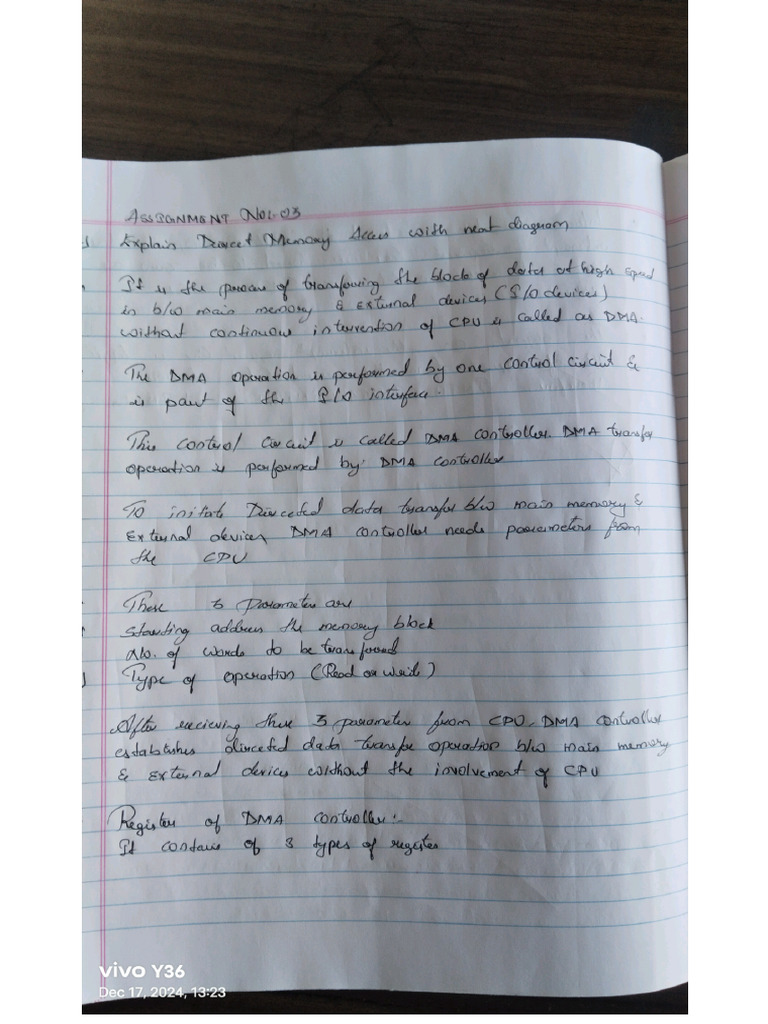 ASSIGNMENT No:-03
Explain Direct Memory Access with neat diagram
It is the process of transfering the block of data at high speed
in b/w main memory & external devices (I/O devices)
without continuous intervention of CPU is called as DMA.
The DMA operation is performed by one control circuit &
is part of the I/O interface.
This control circuit is called DMA controller. DMA transfer
operation is performed by DMA controller
To initate Directed data transfer b/w main memory &
External devices DMA controller needs parameters from
the CPU
These 3 Parameter are
Starting address the memory block
No. of words to be transfered
Type of operation (Read or write)
After recieving these 3 parameter from CPU, DMA controller
establishes directed data transfer operation b/w main memory
& external devices without the involvement of CPU
Register of DMA controller:-
It contains of 3 types of register
vivo Y36
Dec 17, 2024, 13:23